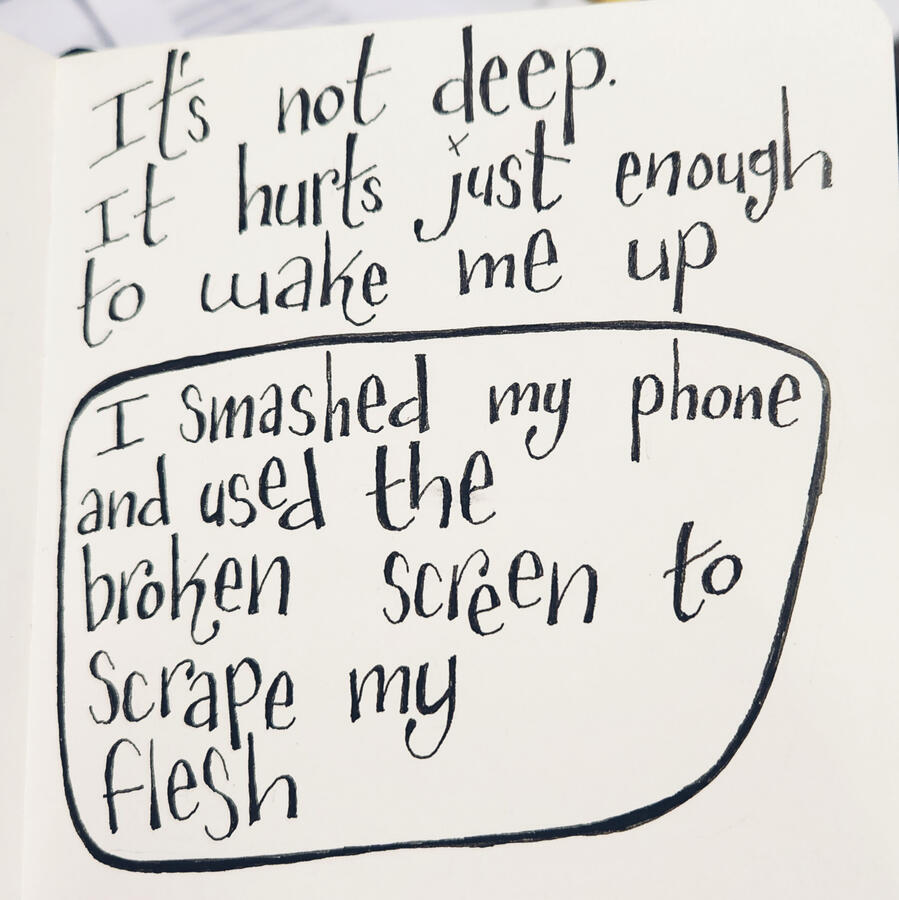 It's not deep.
It hurts just enough
to wake me up
I smashed my phone
and used the
broken screen to
scrape my
flesh